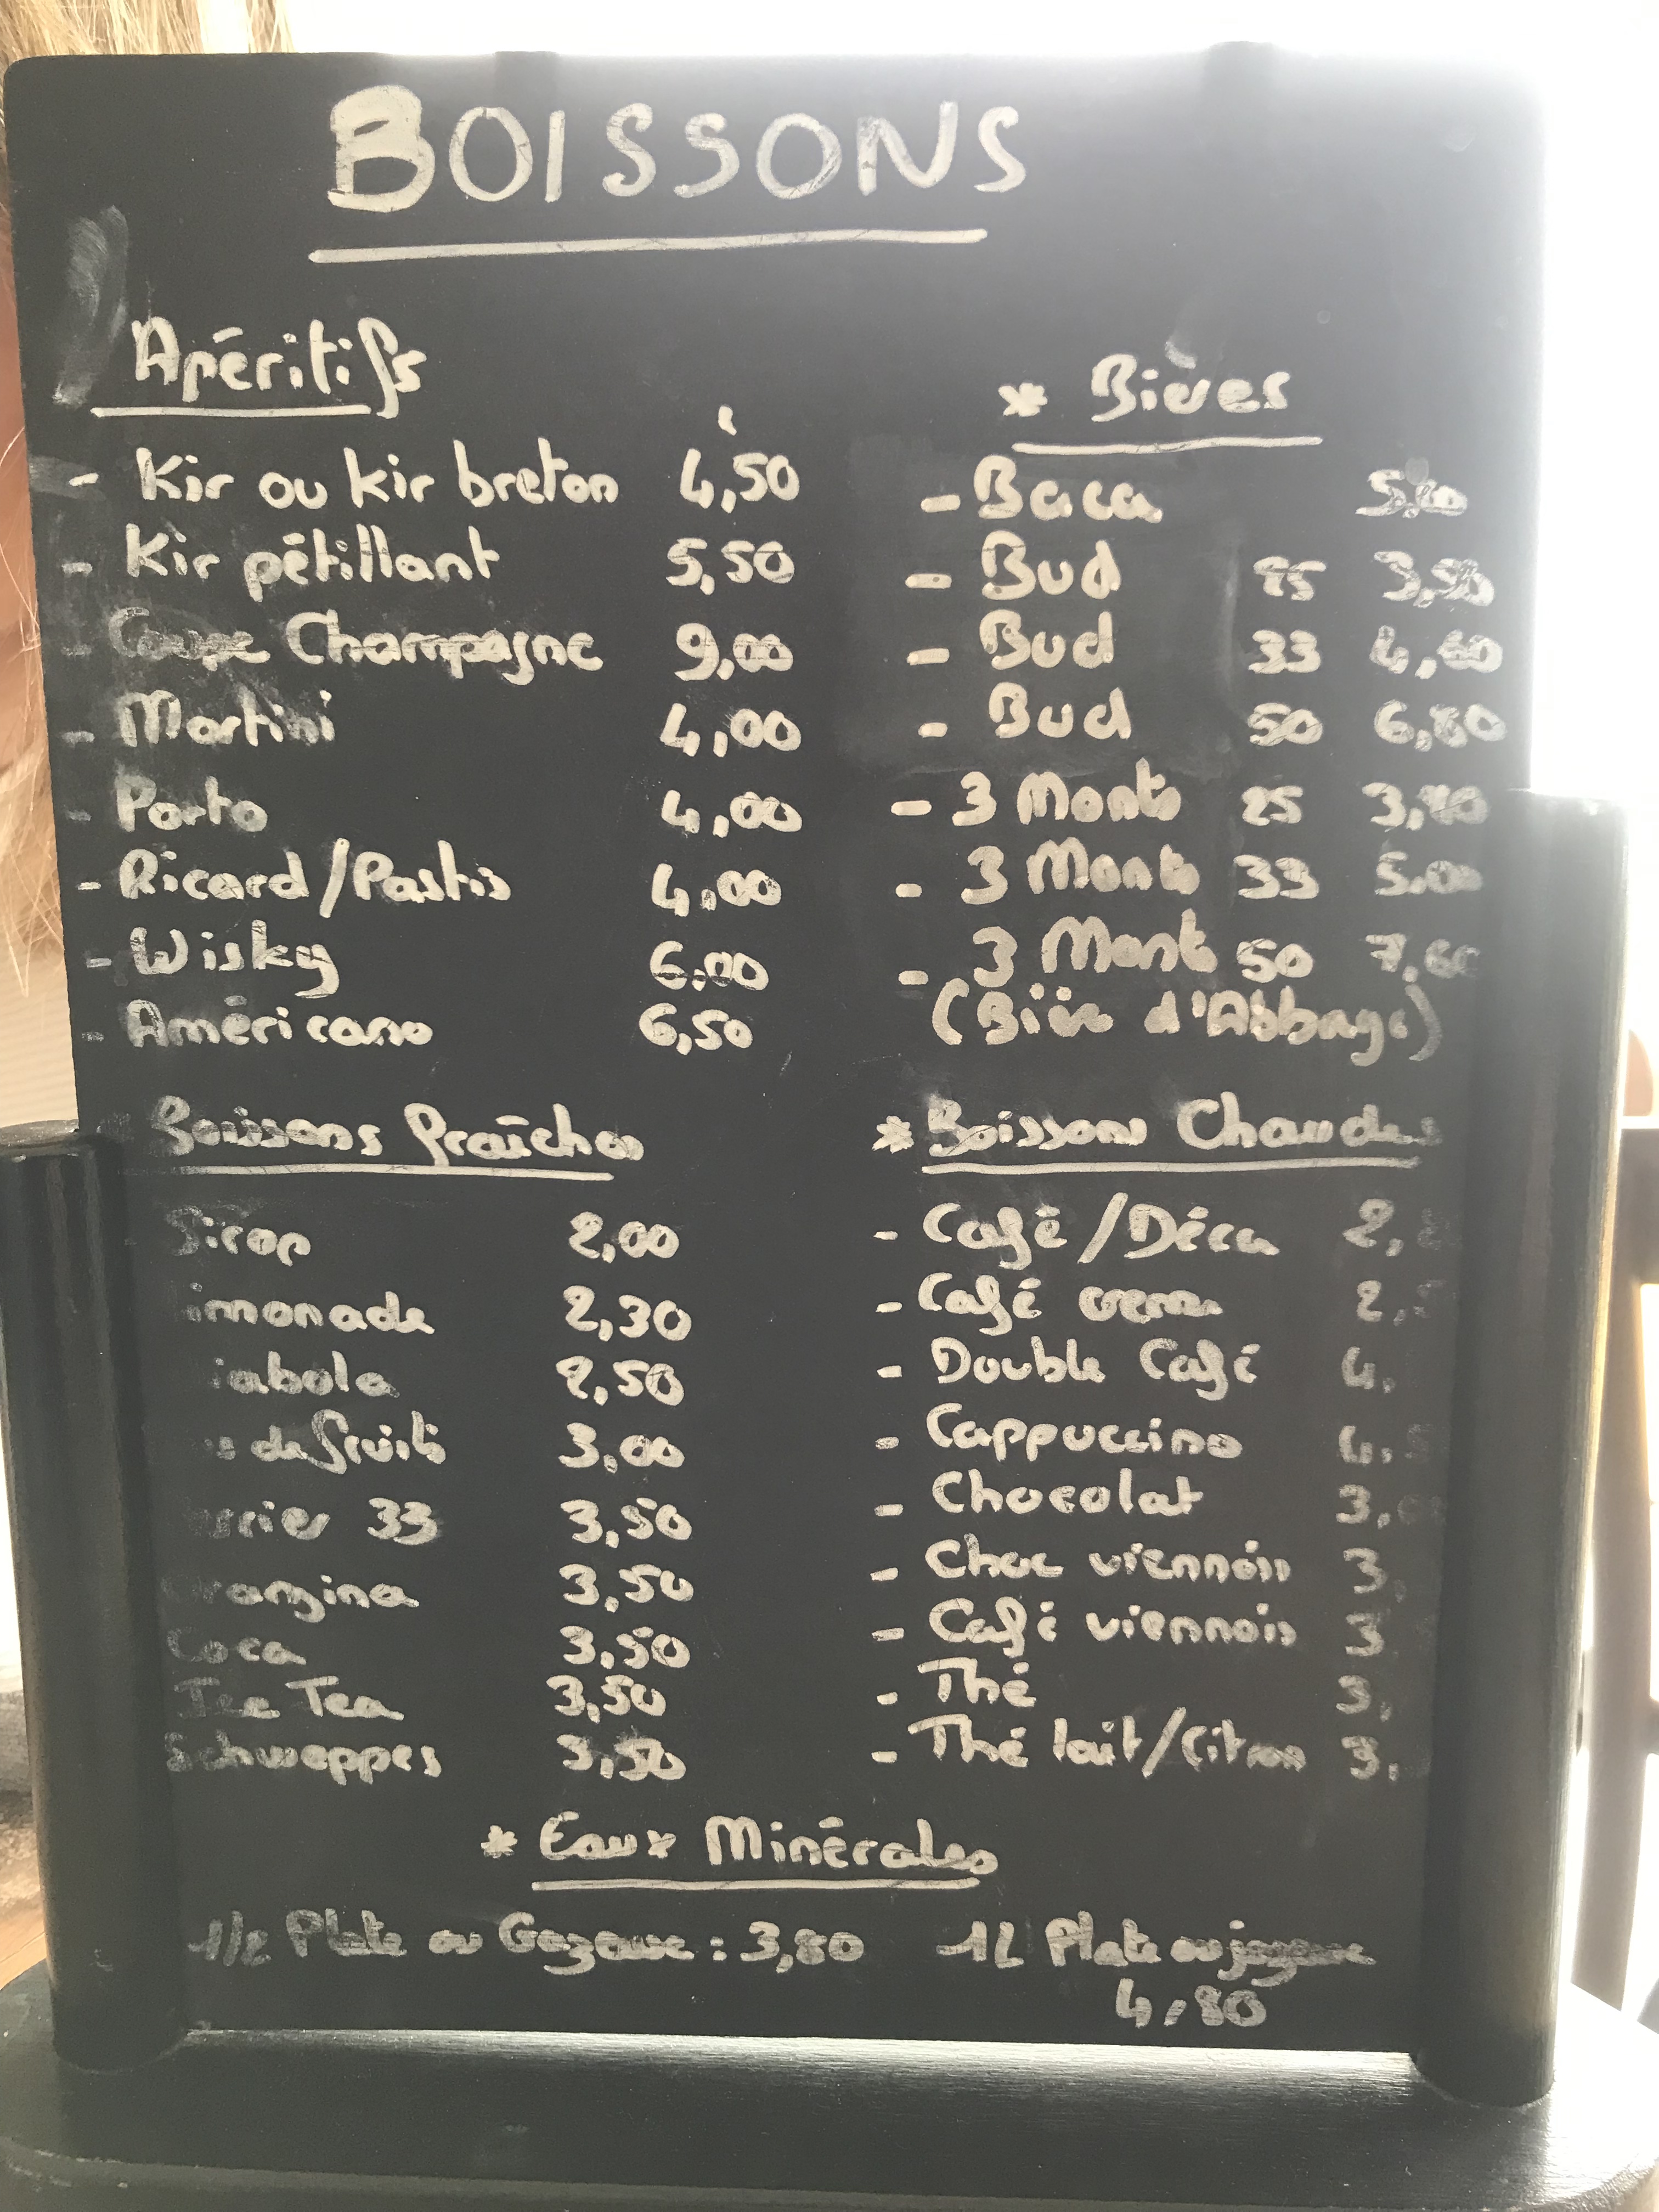 BOISSONS
Apéritifs
- Kir ou kir breton 4,50
- Kir pétillant 5,50
- Coupe Champagne 9,00
- Martini 4,00
- Porto 4,00
- Ricard/Pastis 4,00
- Wisky 6.00
- Américano 6,50
* Bières
- Baca
- Bud 25 3,50
- Bud 33 4,60
- Bud 50 6,80
- 3 Monts 25
- 3 Monts 33 5.00
- 3 Mont 50 7.60
(Bière d'Abbaye)
Boissons fraîches
Sirop 2,00
imonade 2,30
iabolo 2,50
s de fruits 3,00
rrier 33 3,50
rangina 3,50
Coca 3,50
Ice Tea 3,50
Schweppes 3,50
* Boissons Chaudes
- Café/Déca 2,
- Café creme 2,
- Double Café 4,
- Cappuccino 4,
- Chocolat 3,
- Choc viennois 3,
- Café viennois 3
- Thé 3,
- Thé lait/Citron 3,
* Eaux Minérales
1/2 Plate ou Gazeuse : 3,80 1L Plate ou
4,80